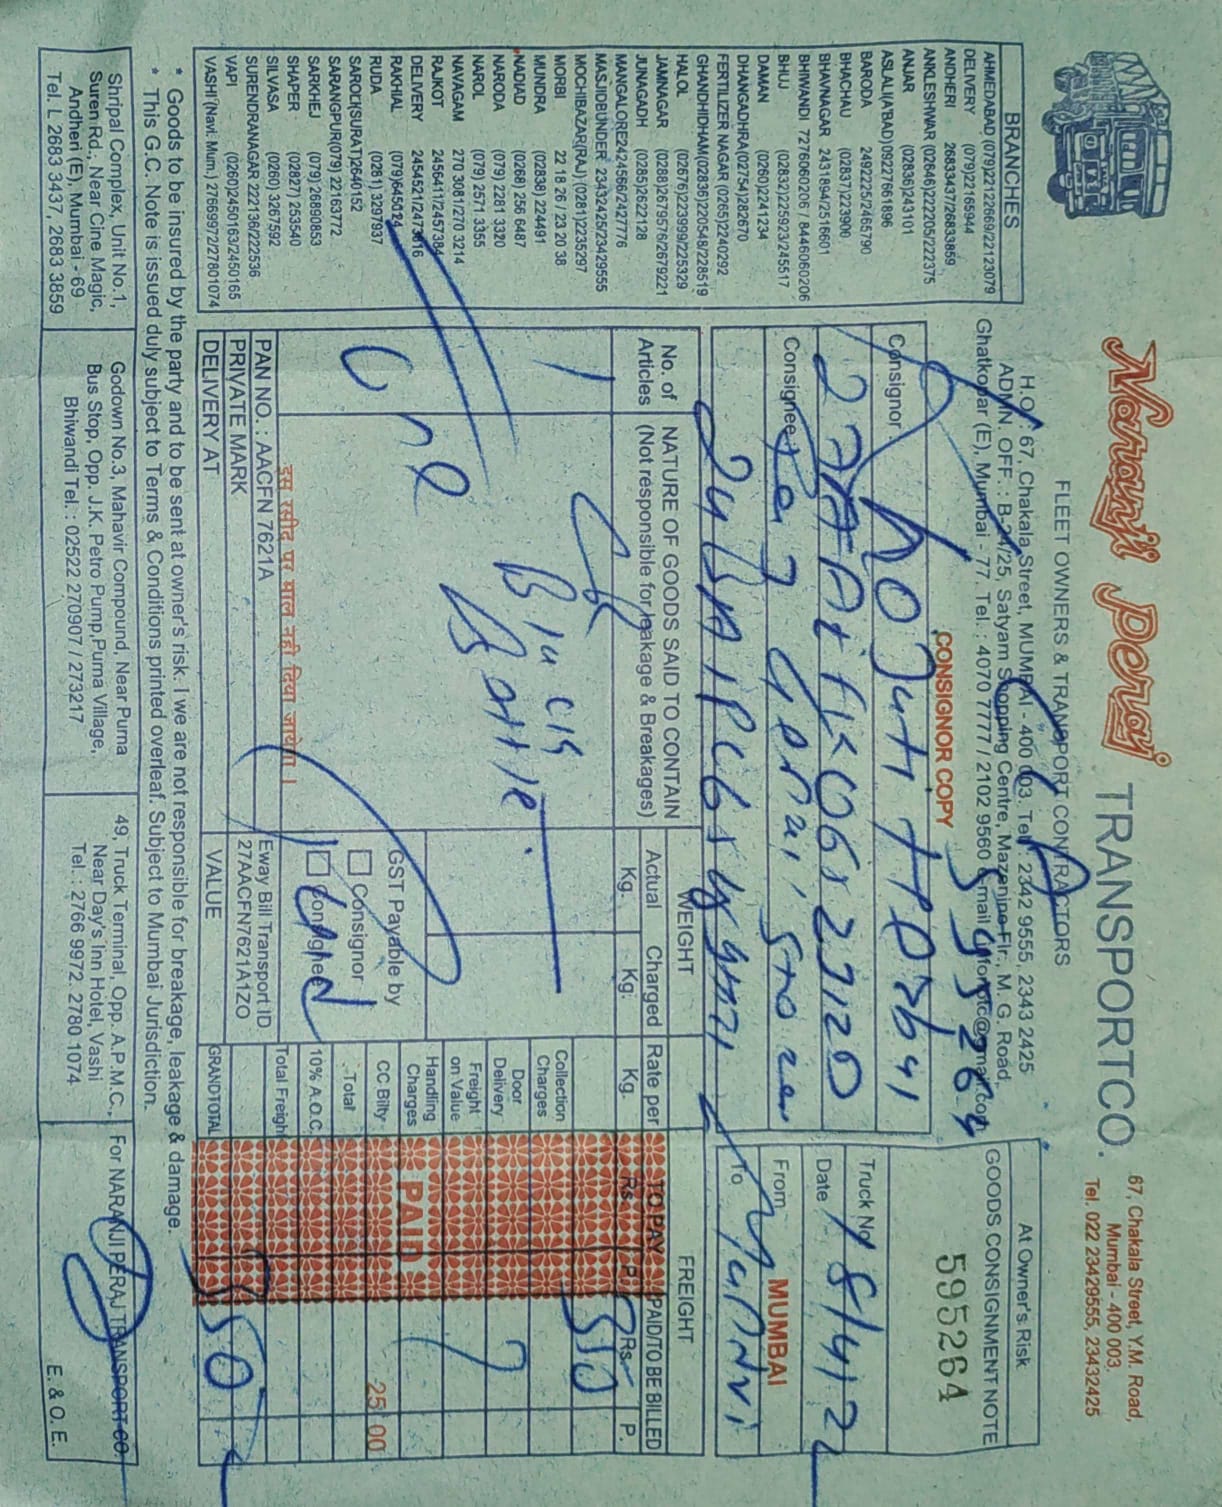 Naranji Peraj TRANSPORT CO.
67, Chakala Street, Y.M. Road,
Mumbai - 400 003.
Tel. 022 23429555, 23432425
FLEET OWNERS & TRANSPORT CONTRACTORS
H.O.: 67, Chakala Street, MUMBAI - 400 003. Tel.: 2342 9555, 2343 2425
ADMN. OFF. : B-24/25, Satyam Shopping Centre, Mazenine Flr, M. G. Road,
Ghatkopar (E), Mumbai - 77. Tel. : 4070 7777 / 2102 9560
CONSIGNOR COPY
595264
At Owner's Risk
GOODS CONSIGNMENT NOTE
595264
BRANCHES
AHMEDABAD (079)22122669/22123079
DELIVERY (079)22165944
ANDHERI 26833437/26833859
ANKLESHWAR (02646)222205/222375
ANJAR (02836)243101
ASLALI(A'BAD)0922761896
BARODA 2492225/2465790
BHACHAU (02837)223900
BHAVNAGAR 2431694/2516601
BHIWANDI 7276060206 / 8446060206
BHUJ (02832)225923/245517
DAMAN (0260)2241234
DHANGADHRA(02754)282670
FERTILIZER NAGAR (0265)2240292
GHANDHIDHAM(02836)220548/228519
HALOL (02676)223999/225329
JAMNAGAR (0288)2679576/2679221
JUNAGADH (0285)2622128
MANGALORE2424566/2427776
MASJIDBUNDER 23432425/23429555
MOCHIBAZAR(RAJ)(0281)2235297
MORBI 22 18 26 / 23 20 38
MUNDRA (02838) 224491
NADIAD (0268) 256 6487
NARODA (079) 2281 3320
NAROL (079) 2571 3355
NAVAGAM 270 3081/270 3214
RAJKOT 2456411/2457384
DELIVERY 2454521/2473616
RAKHIAL (079)645024
RUDA (0281) 329937
SAROLI(SURAT)2640152
SARANGPUR(079) 22163772
SARKHEJ (079) 26890853
SHAPER (02827) 253540
SILVASA (0260) 3267592
SURENDRANAGAR 222136/222536
VAPI (0260)2450163/2450165
VASHI (Navi. Mum.) 27669972/27801074
Consignor
27AAIFK0665271ZD
Consignee
Truck No
Date 18/4/22
From MUMBAI
To
No. of Articles
NATURE OF GOODS SAID TO CONTAIN
(Not responsible for leakage & Breakages)
WEIGHT
Actual Kg.
Charged Kg.
Rate per Kg.
FREIGHT
TO PAY
Rs. P.
PAID/TO BE BILLED
Rs. P.
1
550
Collection Charges
Door Delivery
Freight on Value
Handling Charges
PAID
CC Bilty 25 00
Total
10% A.O.C.
Total Freight
GRAND TOTAL
550
GST Payable by
Consignor
Consignee
इस रसीद पर माल नहीं दिया जायेगा।
PAN NO. : AACFN 7621A
PRIVATE MARK
DELIVERY AT
Eway Bill Transport ID
27AACFN7621A1ZO
VALUE
* Goods to be insured by the party and to be sent at owner's risk. I we are not responsible for breakage, leakage & damage.
* This G.C. Note is issued duly subject to Terms & Conditions printed overleaf. Subject to Mumbai Jurisdiction.
Shripal Complex, Unit No.1,
Suren Rd., Near Cine Magic,
Andheri (E), Mumbai - 69
Tel. L 2683 3437, 2683 3859
Godown No.3, Mahavir Compound, Near Purna
Bus Stop, Opp. J.K. Petro Pump,Purna Village,
Bhiwandi Tel. : 02522 270907 / 273217
49, Truck Terminal, Opp. A.P.M.C.,
Near Day's Inn Hotel, Vashi
Tel. : 2766 9972. 2780 1074
For NARANJI PERAJ TRANSPORT CO.
E. & O. E.